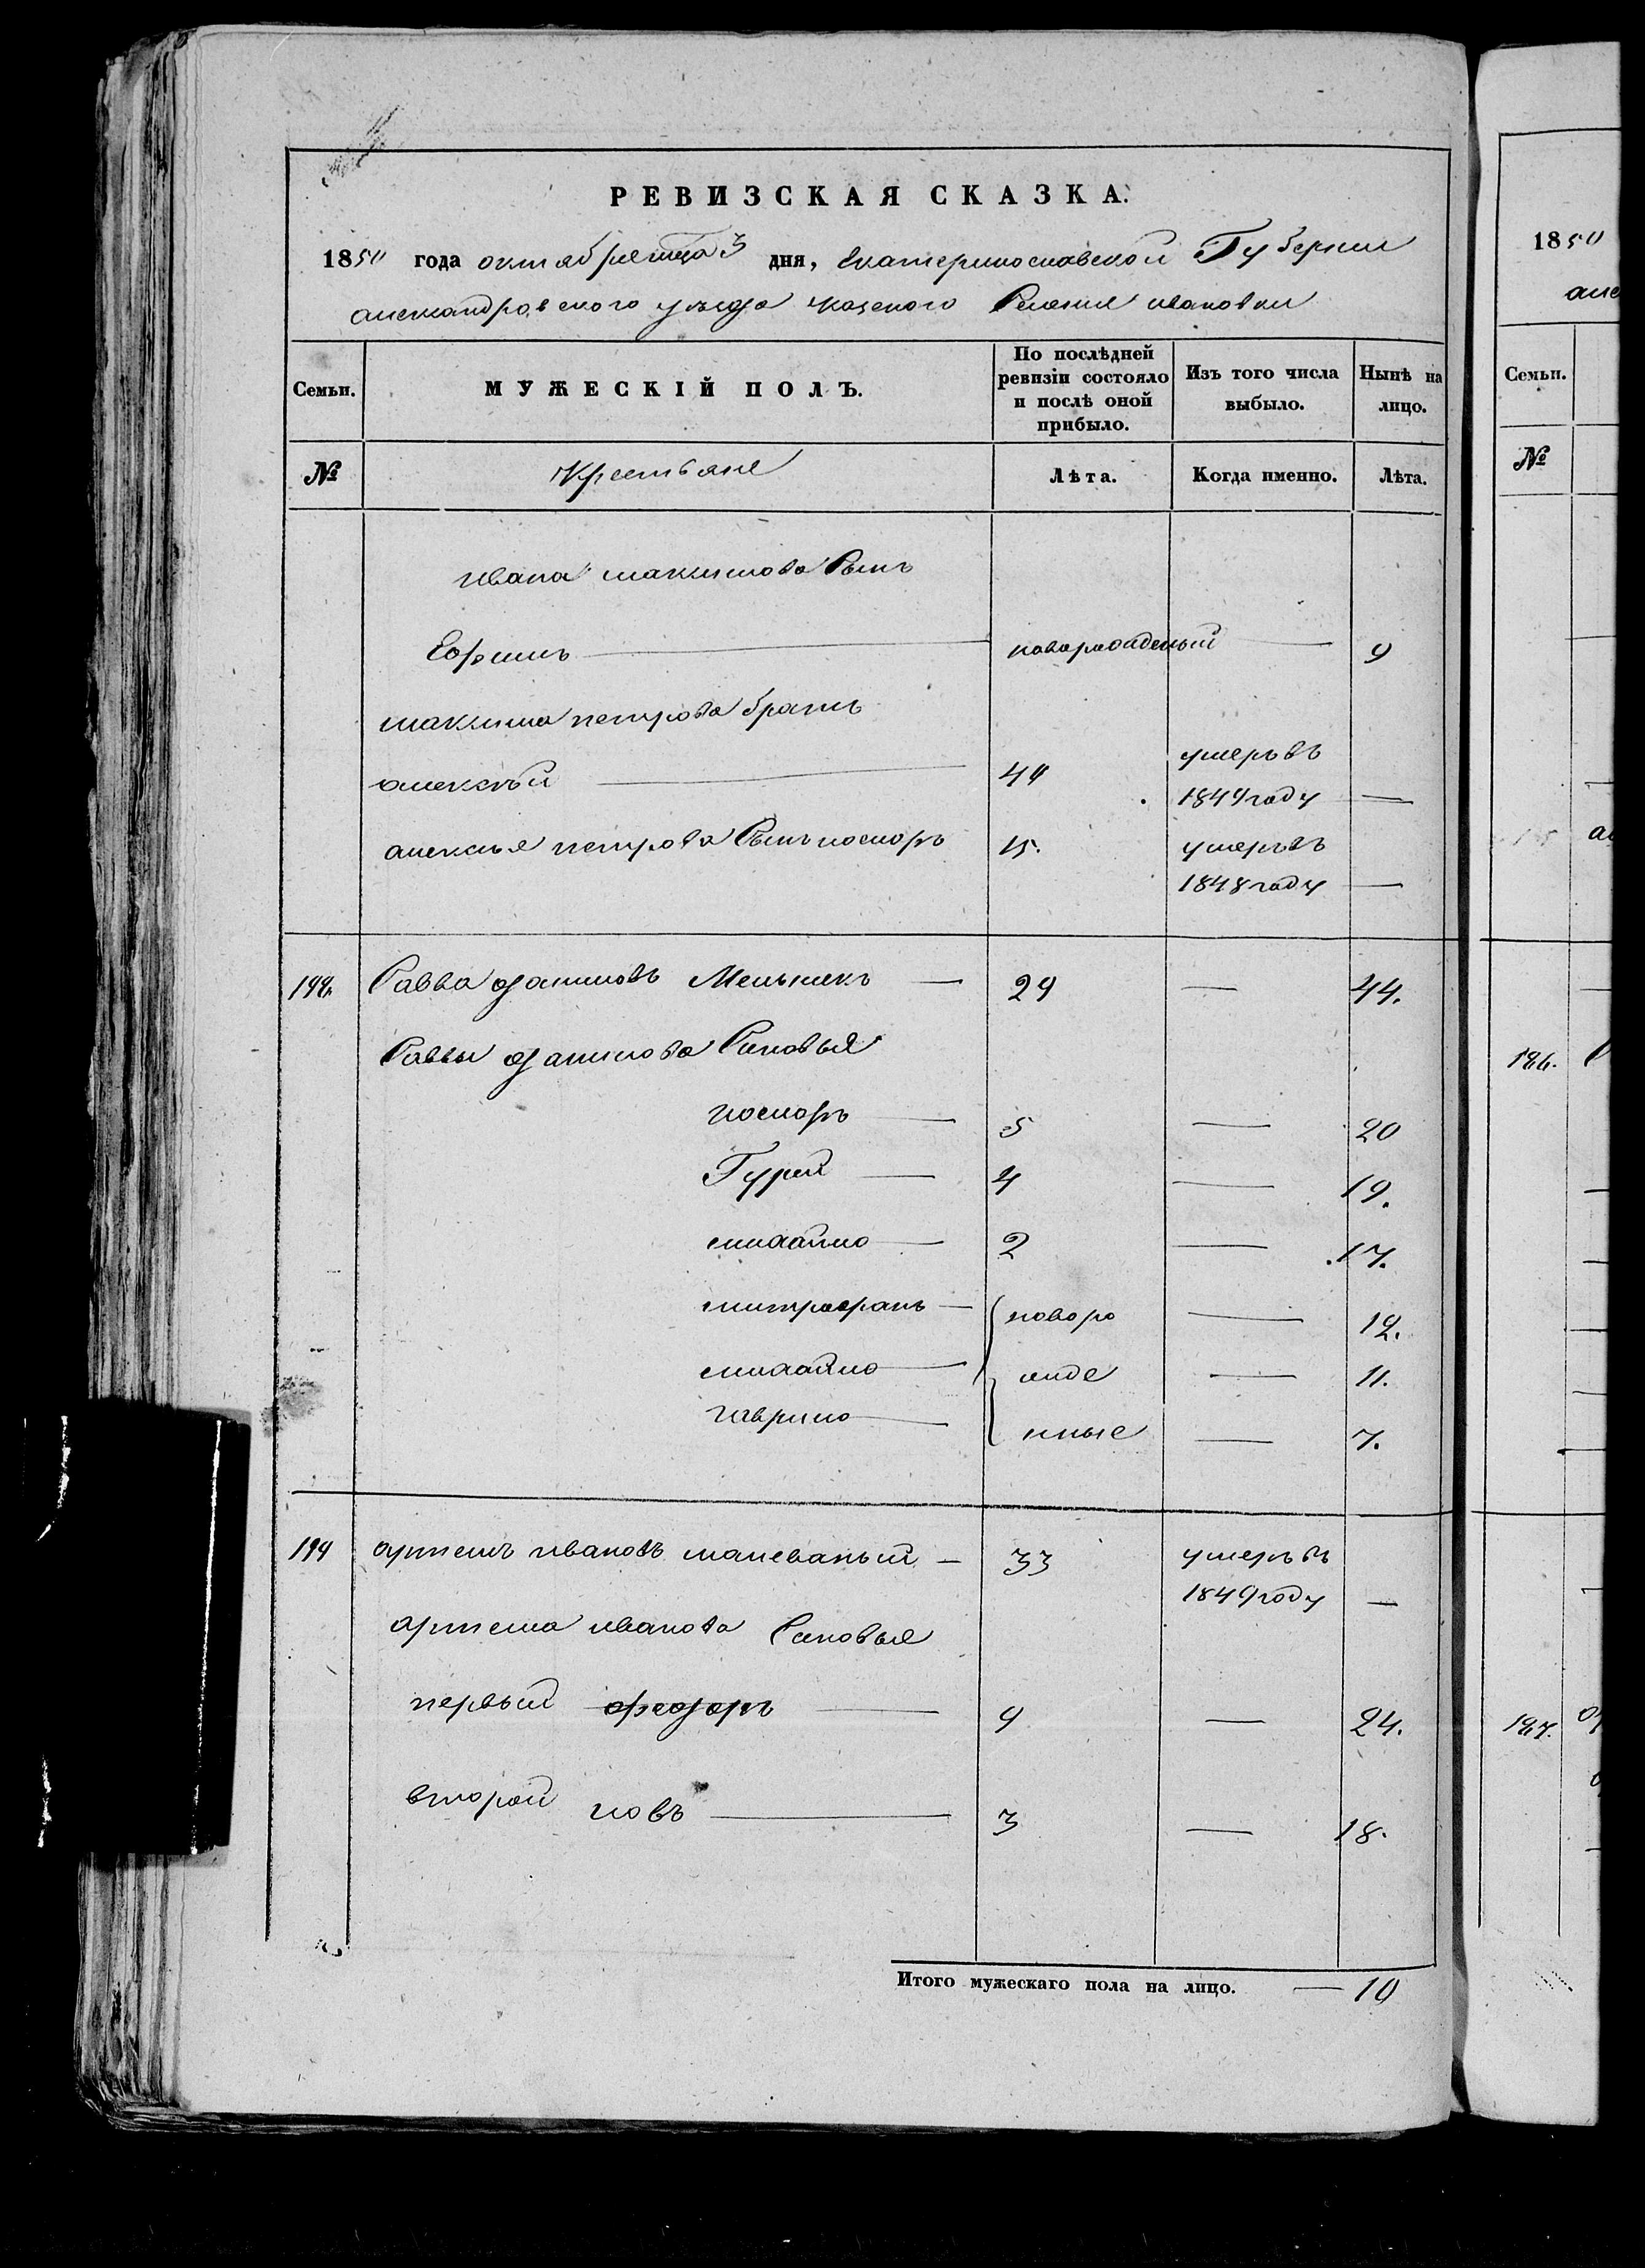 РЕВИЗСКАЯ СКАЗКА.
1850 года октября месяца 3 дня, Екатеринославской Губернии
александровского уезда казеного Селения ивановки
Семьи.
МУЖЕСКІЙ ПОЛЪ.
По послѣдней ревизіи состояло и послѣ оной прибыло.
Изъ того числа выбыло.
Нынѣ на лицо.
№
Крестьяне
Лѣта.
Когда именно.
Лѣта.
ивана максимова Сынъ
Ефимъ новорожденый 9
максима петрова братъ
алексѣй 44 умеръ въ
1849 году
алексея петрова Сынъ 15. умеръ въ
1848 году
Савва даниловъ Мельникъ 29 44.
Саввы данилова Сыновья
5 20
Гурей 4 19.
михайло 2 17.
митрофанъ новоро 12.
михайло жде 11.
гаврило нные 7.
194 артемъ ивановъ малеваный 33 умеръ въ
1849 году
артема иванова Сыновья
первый федоръ 9 24.
второй иовъ 3 18.
Итого мужескаго пола на лицо. 10
1850
але
Семьи.
№
186.
187.